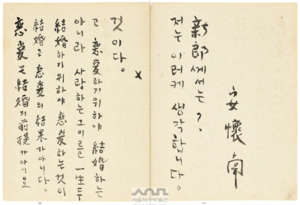 新郞께서는?.
저는 이러케 생각합니다.
安懷南
戀愛도結婚의前提가아니오
結婚도 戀愛의結果가아니다.
結婚하기위하야 戀愛하는것이
아니라 사랑하는 그이를 一生두
고 戀愛하기위하야 結婚하는
것이다.